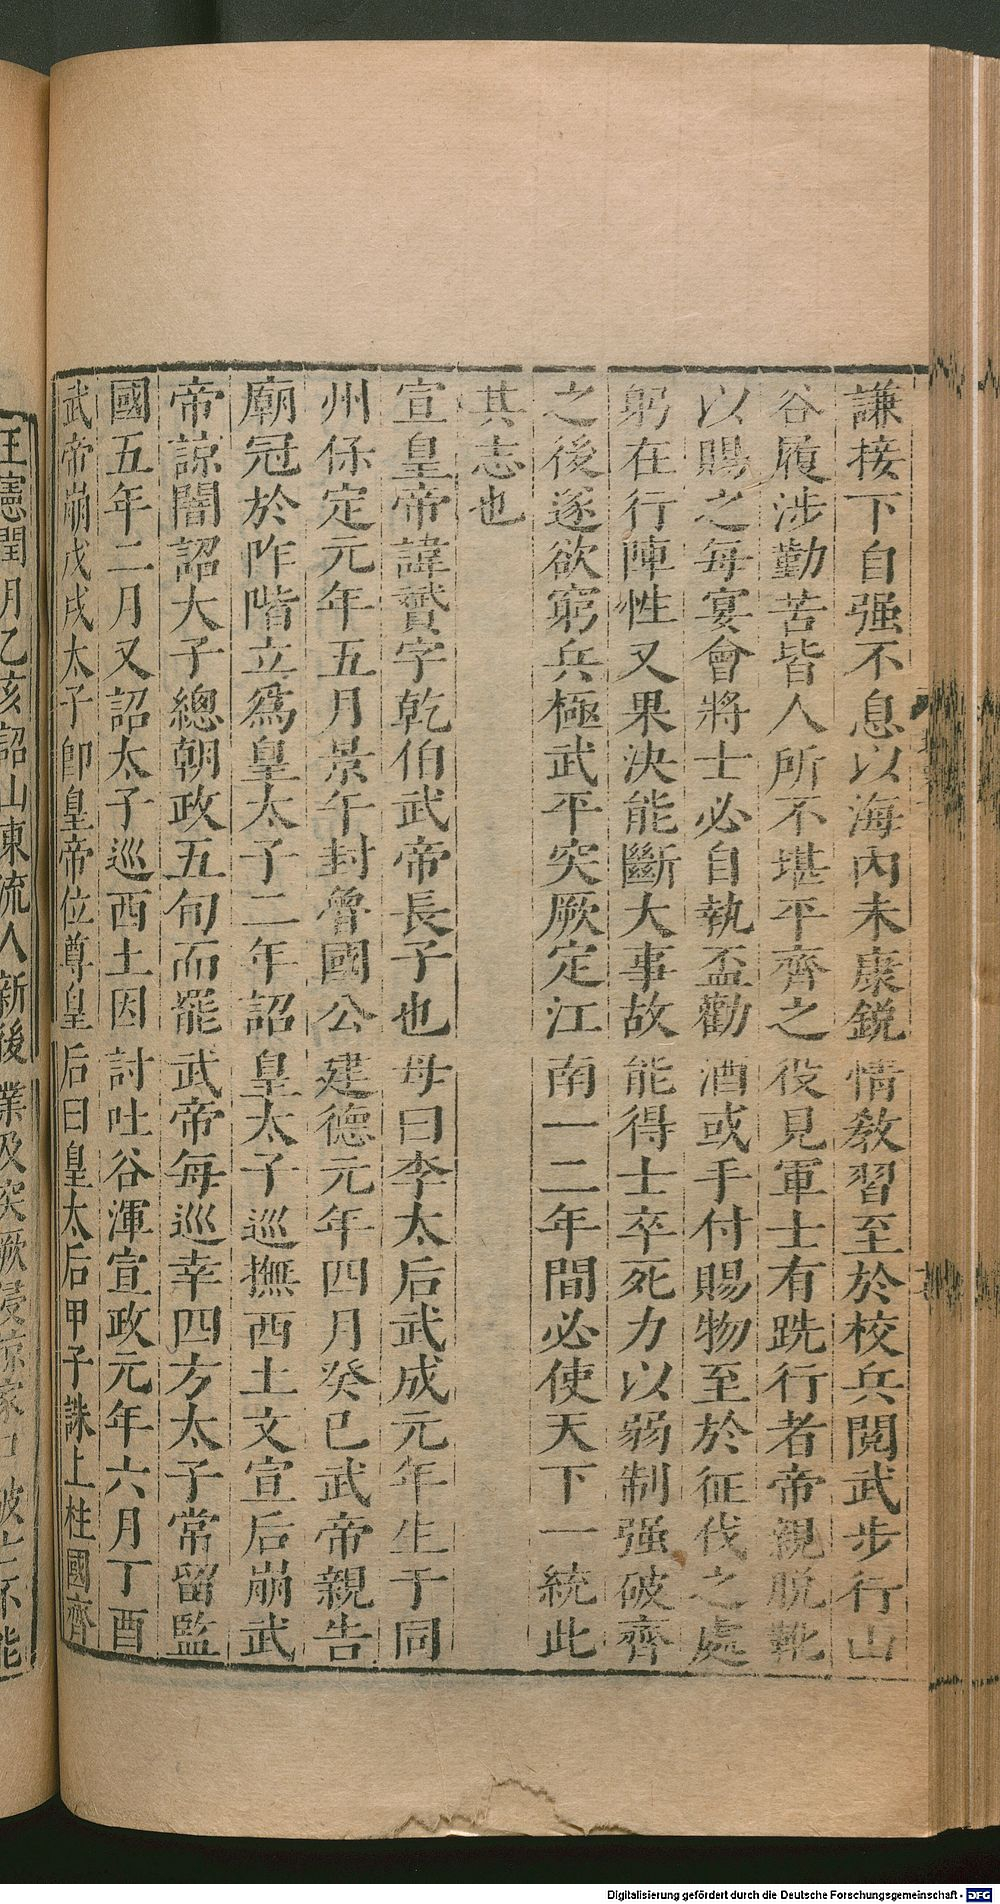 謙接下自强不息以海內未康銳情教習至於校兵閱武步行山
谷履涉勤苦皆人所不堪平齊之役見軍士有跣行者帝親脫靴
以賜之每宴會將士必自執盃勸酒或手付賜物至於征伐之處
躬在行陣性又果決能斷大事故能得士卒死力以弱制强破齊
之後遂欲窮兵極武平突厥定江南一二年間必使天下一統此
其志也
宣皇帝諱贇字乾伯武帝長子也母曰李太后武成元年生于同
州保定元年五月景午封魯國公建德元年四月癸巳武帝親告
廟冠於阼階立爲皇太子二年詔皇太子巡撫西土文宣后崩武
帝諒闇詔太子總朝政五旬而罷武帝每巡幸四方太子常留監
國五年二月又詔太子巡西土因討吐谷渾宣政元年六月丁酉
武帝崩戊戌太子卽皇帝位尊皇后曰皇太后甲子誅上柱國齊
王憲閏月乙亥詔山東流人新後業及突厥侵掠家口破亡不能
Digitalisierung gefördert durch die Deutsche Forschungsgemeinschaft - DFG